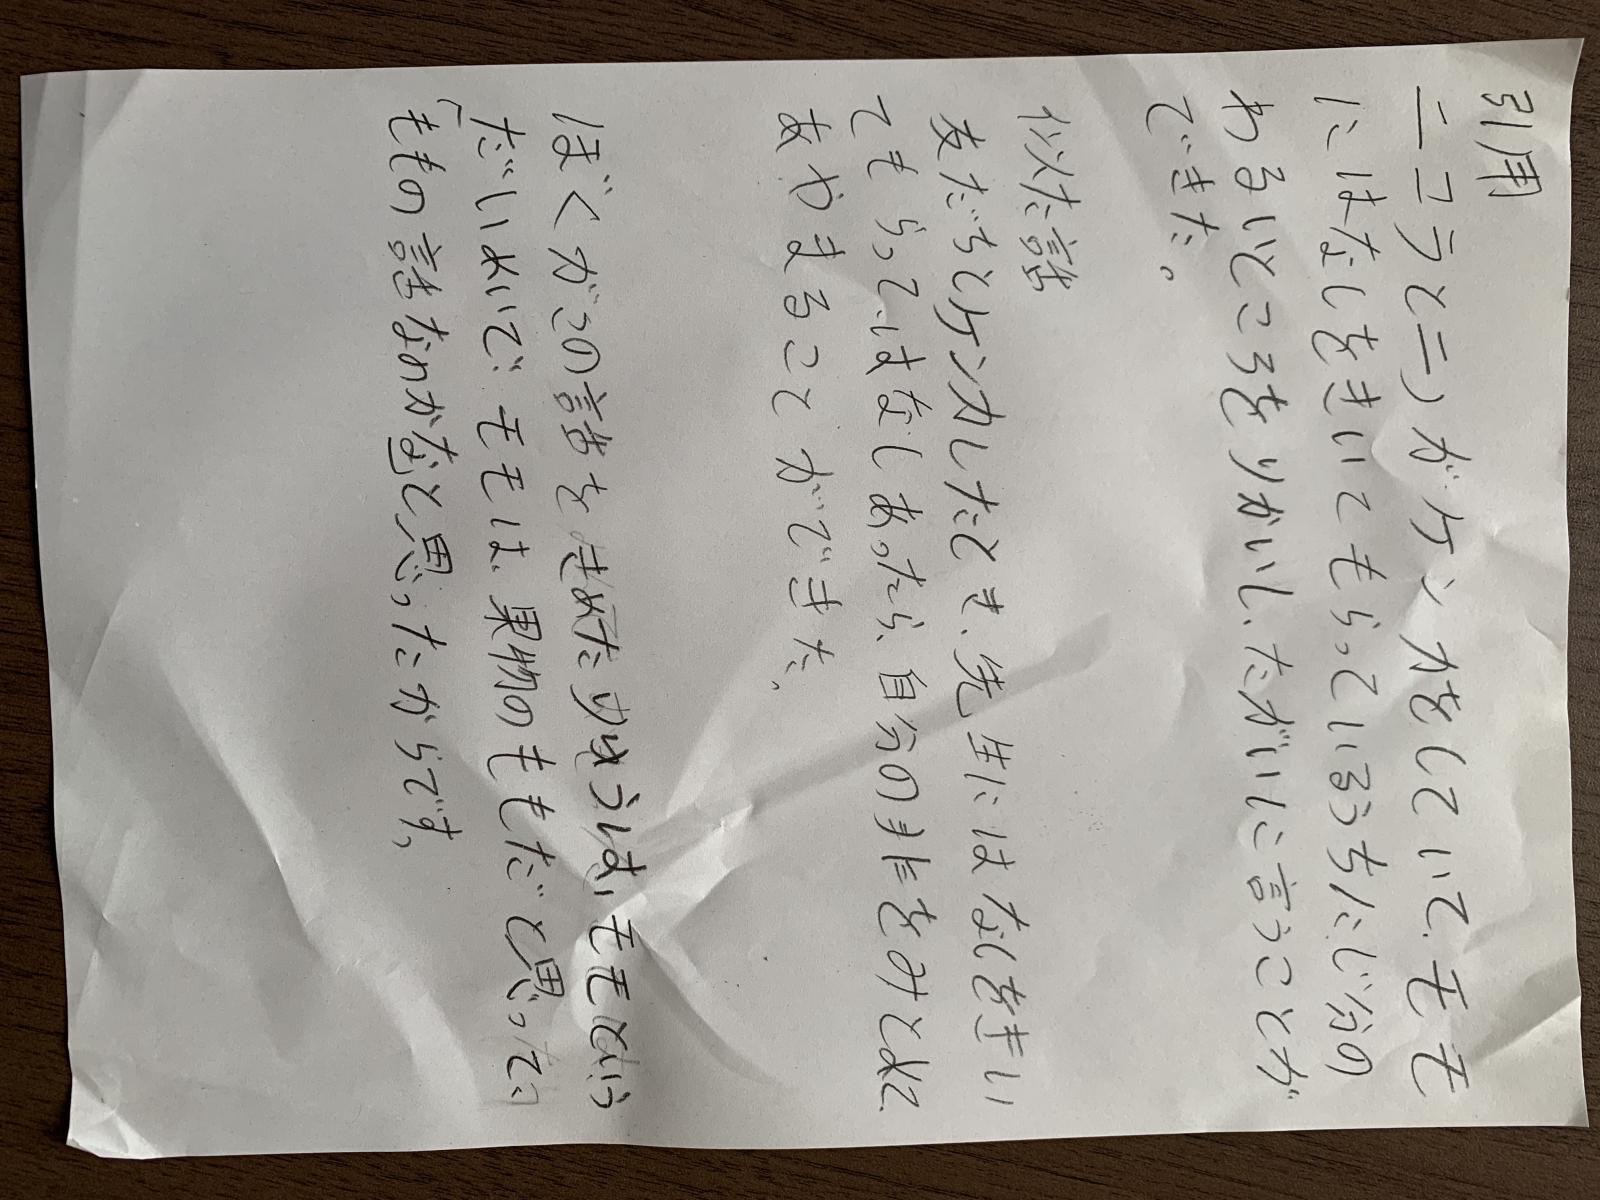 引用
ニコラとニノがケンカをしていて、モモ
にはなしをきいてもらっているうちにじ分の
わるいところをりかいし、たがいに言うことが
できた。
似た話
友だちとケンカしたとき、先生にはなしをきい
てもらって、はなしあったら、自分の非をみとめて
あやまることができた。
ぼくがこの話をきめたりゆうは、モモという
だいめいで、モモは、果物のももだと思って、
「ももの話なのかな」と思ったからです。